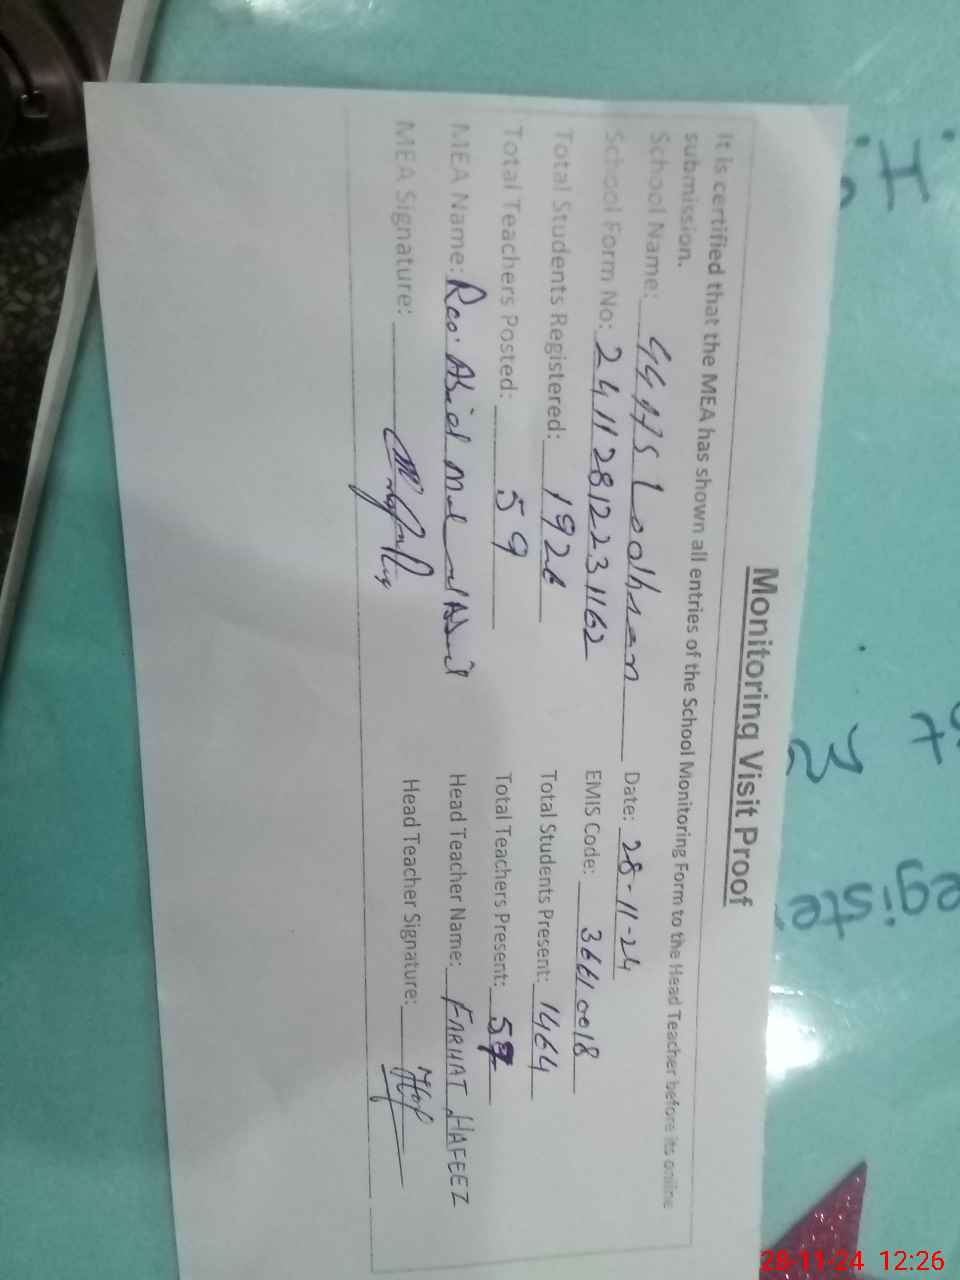 Monitoring Visit Proof
It is certified that the MEA has shown all entries of the School Monitoring Form to the Head Teacher before its online
submission.
School Name: GGHS Lodhran Date: 28-11-24
School Form No: 24112812231162 EMIS Code: 36610018
Total Students Registered: 1926 Total Students Present: 1464
Total Teachers Posted: 59 Total Teachers Present:
MEA Name: Rao Abid Head Teacher Name: FARHAT HAFEEZ
MEA Signature: Head Teacher Signature:
egiste
28-11-24 12:26